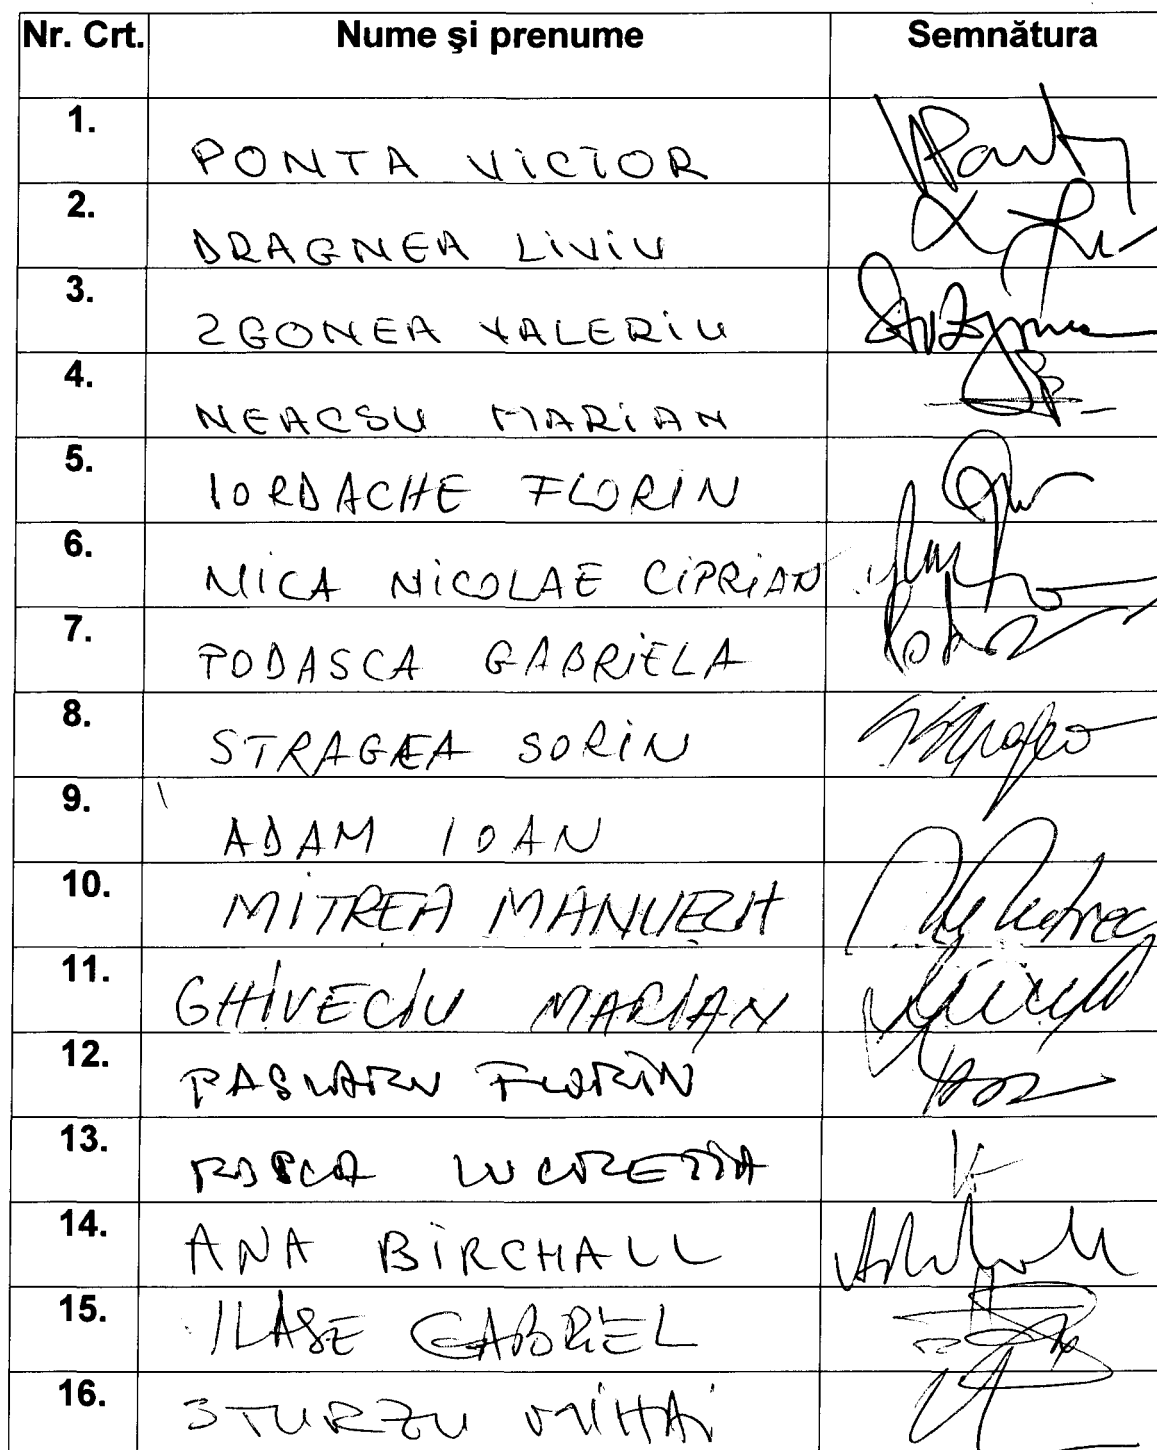 Nr. Crt. Nume şi prenume Semnătura
1. PONTA VICTOR
2. DRAGNEA LIVIU
3. ZGONEA VALERIU
4. NEACSU MARIAN
5. IORDACHE FLORIN
6. NICA NICOLAE CIPRIAN
7. PODASCA GABRIELA
8. STRAGEA SORIN
9. ADAM IOAN
10. MITREA MANUELA
11. GHIVECIU MARIAN
12. PASLARU FLORIN
13. ROSCA LUCRETIA
14. ANA BIRCHALL
15. ILASE GABRIEL
16. STURZU MIHAI